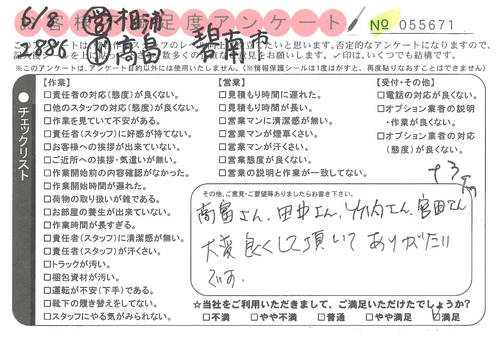 6/8 営 相浦
お客様満足度アンケート
№ 055671
2886 作 高畠 碧南市
※このアンケートは、アンケート目的以外には使用いたしません。(※情報保護シールは1度はがすと、再度貼りなおすことはできません)
チェックリスト
【作業】
□責任者の対応(態度)が良くない。
□他のスタッフの対応(態度)が良くない。
□作業を見ていて不安がある。
□責任者(スタッフ)に好感が持てない。
□お客様への挨拶が出来ていない。
□ご近所への挨拶・気遣いが無い。
□作業開始前の内容確認がなかった。
□作業開始時間が遅れた。
□荷物の取り扱いが雑である。
□お部屋の養生が出来ていない。
□作業時間が長すぎる。
□責任者(スタッフ)に清潔感が無い。
□責任者(スタッフ)が汗くさい。
□トラックが汚い。
□梱包資材が汚い。
□運転が不安(下手)である。
□靴下の履き替えをしてない。
□スタッフにやる気がみられない。
【営業】
□見積もり時間に遅れた。
□見積もり時間が長い。
□営業マンに清潔感が無い。
□営業マンが煙草くさい。
□営業マンが汗くさい。
□営業態度が良くない。
□営業の説明と作業が一致してない。
【受付・その他】
□電話の対応が良くない。
□オプション業者の説明・作業が良くない。
□オプション業者の対応(態度)が良くない。
その他、ご意見・ご要望等ありましたらお書き下さい。
高畠さん、田中さん、竹内さん、宮田さん
大変良くして頂いて ありがたい
です。
☆当社をご利用いただきまして、ご満足いただけたでしょうか?
□不満 □やや不満 □普通 □やや満足 ☑満足